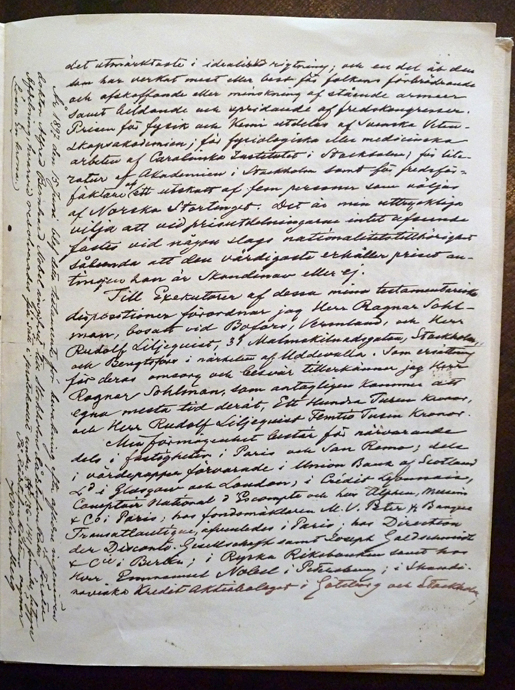 det utmärktaste i idealisk rigtning; och en del åt den
som har verkat mest eller best för folkens förbrödrande
och afskaffande eller minskning af stående armeer
samt bildande och spridande af fredskongresser.
Prisen för fysik och kemi utdelas af Svenska Veten-
skapsakademien; för fysiologiska eller medicinska
arbeten af Carolinska Institutet i Stockholm; för lite-
ratur af Akademien i Stockholm samt för fredsför-
fäktare af ett utskott af fem personer som väljas
af Norska Stortinget. Det är min uttryckliga
vilja att vid prisutdelningarne intet afseende
fästes vid någon slags nationalitetstillhörighet
sålunda att den värdigaste erhåller priset an-
tingen han är Skandinav eller ej.
Till Exekutorer af dessa mina testamentariska
dispositioner förordnar jag Herr Ragnar Sohl-
man, bosatt vid Bofors, Vermland, och Herr
Rudolf Liljequist, 31 Malmskilnadsgatan, Stockholm,
och Bengtsfors i närheten af Uddevalla. Som ersättning
för deras omsorg och besvär tillerkänner jag Herr
Ragnar Sohlman, som antagligen kommer att
egna mesta tid deråt, Ett Hundra Tusen Kronor,
och Herr Rudolf Liljequist Femtio Tusen Kronor.
Min förmögenhet består för närvarande
dels i fastigheter i Paris och San Remo; dels
i värdepapper förvarade i Union Bank of Scotland
Ld i Glasgow och London; i Crédit Lyonnais,
Comptoir National d'Escompte och hos Alphen, Messin
& Co i Paris; hos fondmäklaren M. V. Peter & Banque
Transatlantique, äfvenledes i Paris; hos Direction
der Disconto Gesellschaft samt Joseph Goldschmidt
& Cie i Berlin; i Ryska Riksbanken samt hos
Herr Emmanuel Nobel i Petersburg; i Skandi-
naviska Kredit Aktiebolaget i Göteborg och Stockholm
År 1897 den 5